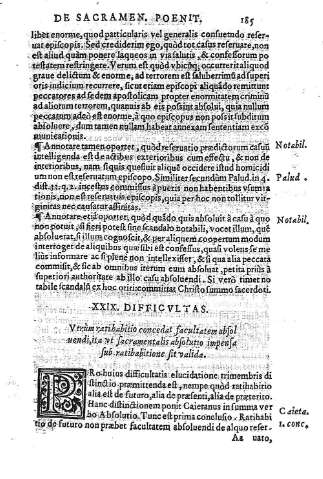 DE SACRAMEN. POENIT. 185
libet enorme, quod particularis vel generalis consuevit reser-
uat episcopis. Sed crediderim ego, quòd tot casus reseruare, non
est aliud quàm ponere laqueos in vis salutis, & confessorum po
testatem restringere. Verum est quòd vbi occurrerit aliquod
graue delictum & enorme, ad terrorem est saluberrimũ ad superi
oris iudicium recurrere, sicut etiam episcopi aliquãdo remittunt
peccatores ad sedem apostolicam propter enormitatem criminũ
ad aliorum terrorem, quamuis ab eis possint absolui, quia nullum
peccatum adeò est enorme, à quo episcopus non possit subditum
absoluere, dum tamen nullam habeat annexam sententiam exco
municationis.
¶ Annotare tamen oportet, quòd reseruatio predictorum casuũ Notabil.
intelligenda est de actibus exterioribus cum effectu, & non de
interioribus, nam siquis quesijt aliquem occidere istud homicidi
um non est reseruatum episcopo. Similiter secundùm Palud. in 4. Palud.
dist. 21. q. 2. incestus commissus à pueris non habentibus vsum ra
tionis, non est reseruatus episcopis, quia per hoc non tollitur vir
ginitas nec causatur affinitas.
¶ Annotare etiã oportet, quòd quãdo quis absoluit à casu à quo Notabil.
non potuit, si fieri potest sine scandalo notabili, vocet illum, quẽ
absoluerat, si illum cognoscit, & per aliquem coopertum modum
interroget de aliquibus que sibi est confessus, quasi volens se me
lius informare ac si plenè non intellexisset, & si qua alia peccata
commisit, & sic ab omnibus iterum eum absoluat, petita priùs à
superiori authoritate ab illo casu absoluendi. Si verò timet no
tabile scandalũ ex hoc oriri: committat Christo summo sacerdoti.
XXIX. DIFFICVLTAS.
Vtrùm ratihabitio concedat facultatem absol
uendi, ita vt sacramentalis absolutio impensa
sub ratihabitione sit valida.
PRo huius difficultatis elucidatione trimembris di
stinctio præmittenda est, nempe quòd ratihabitio
alia est de futuro, alia de præsenti, alia de præterito.
Hanc distinctionem ponit Caietanus in summa ver Caieta.
bo Absolutio. Tunc est prima conclusio. Ratihabi 1. conc.
tio de futuro non præbet facultatem absoluendi de aliquo reser-
Aa uato,